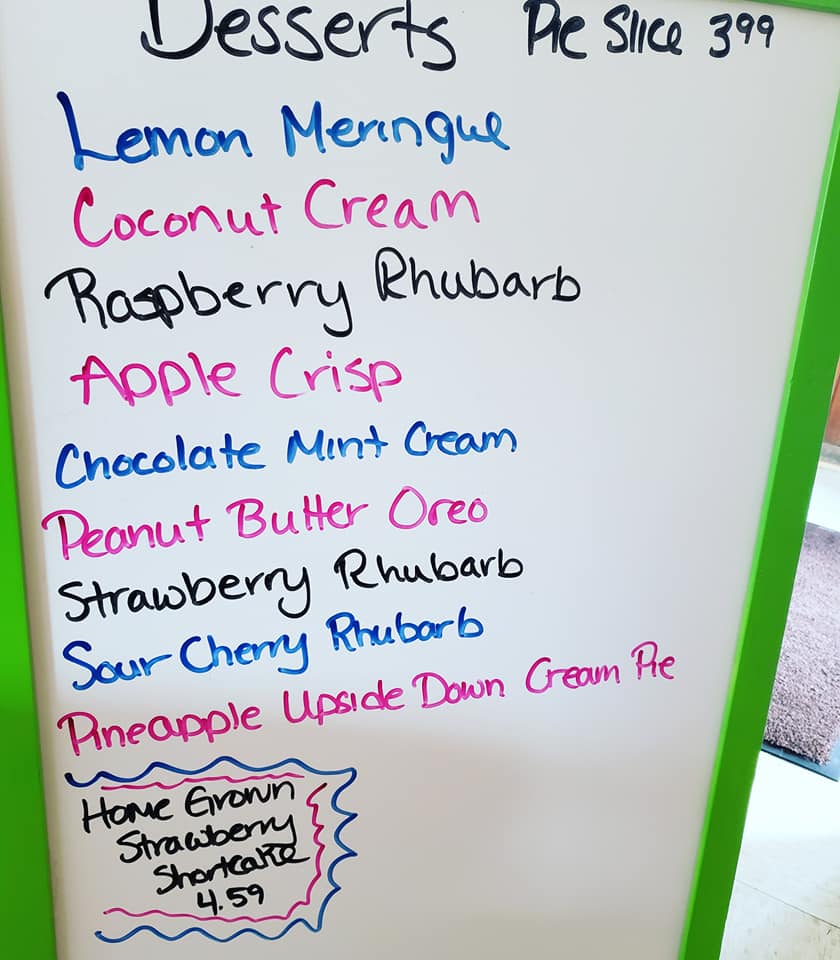 Desserts Pie Slice 399
Lemon Meringue
Coconut Cream
Raspberry Rhubarb
Apple Crisp
Chocolate Mint Cream
Peanut Butter Oreo
Strawberry Rhubarb
Sour Cherry Rhubarb
Pineapple Upside Down Cream Pie
Home Grown
Strawberry
Shortcake
4.59